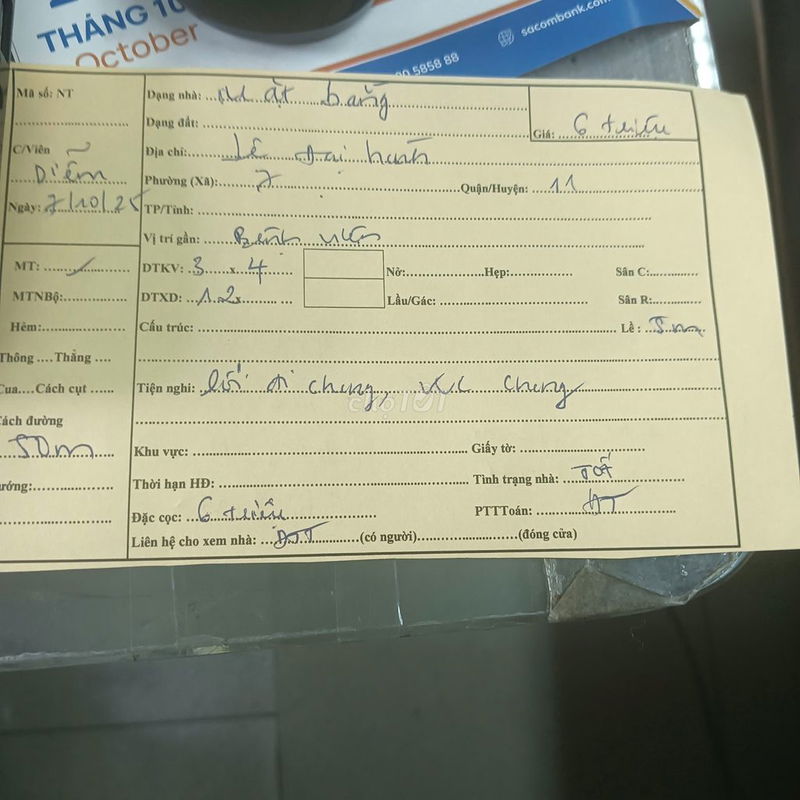 THÁNG 10
October
sacombank.com
5858 88
Mã số: NT
Dạng nhà: Mặt bằng
Dạng đất:
Giá: 6 triệu
C/Viên
Diễm
Địa chỉ: Lê Đại hành
Phường (Xã): 7 Quận/Huyện: 11
Ngày: 7/10/25
TP/Tỉnh:
Vị trí gần: Bệnh viện
MT:
DTKV: 3 x 4 Nở: Hẹp: Sân C:
MTNBộ:
DTXD: 12 Lầu/Gác: Sân R:
Hẻm:
Cấu trúc: Lề: 5m
Thông .... Thẳng ....
Cua.... Cách cụt ......
Tiện nghi: lối đi chung, WC chung
Chợ TỐT
ách đường
50m
Khu vực: Giấy tờ:
ướng:
Thời hạn HĐ: Tình trạng nhà: Tốt
Đặc cọc: 6 triệu PTTToán:
Liên hệ cho xem nhà: ĐTT (có người) (đóng cửa)